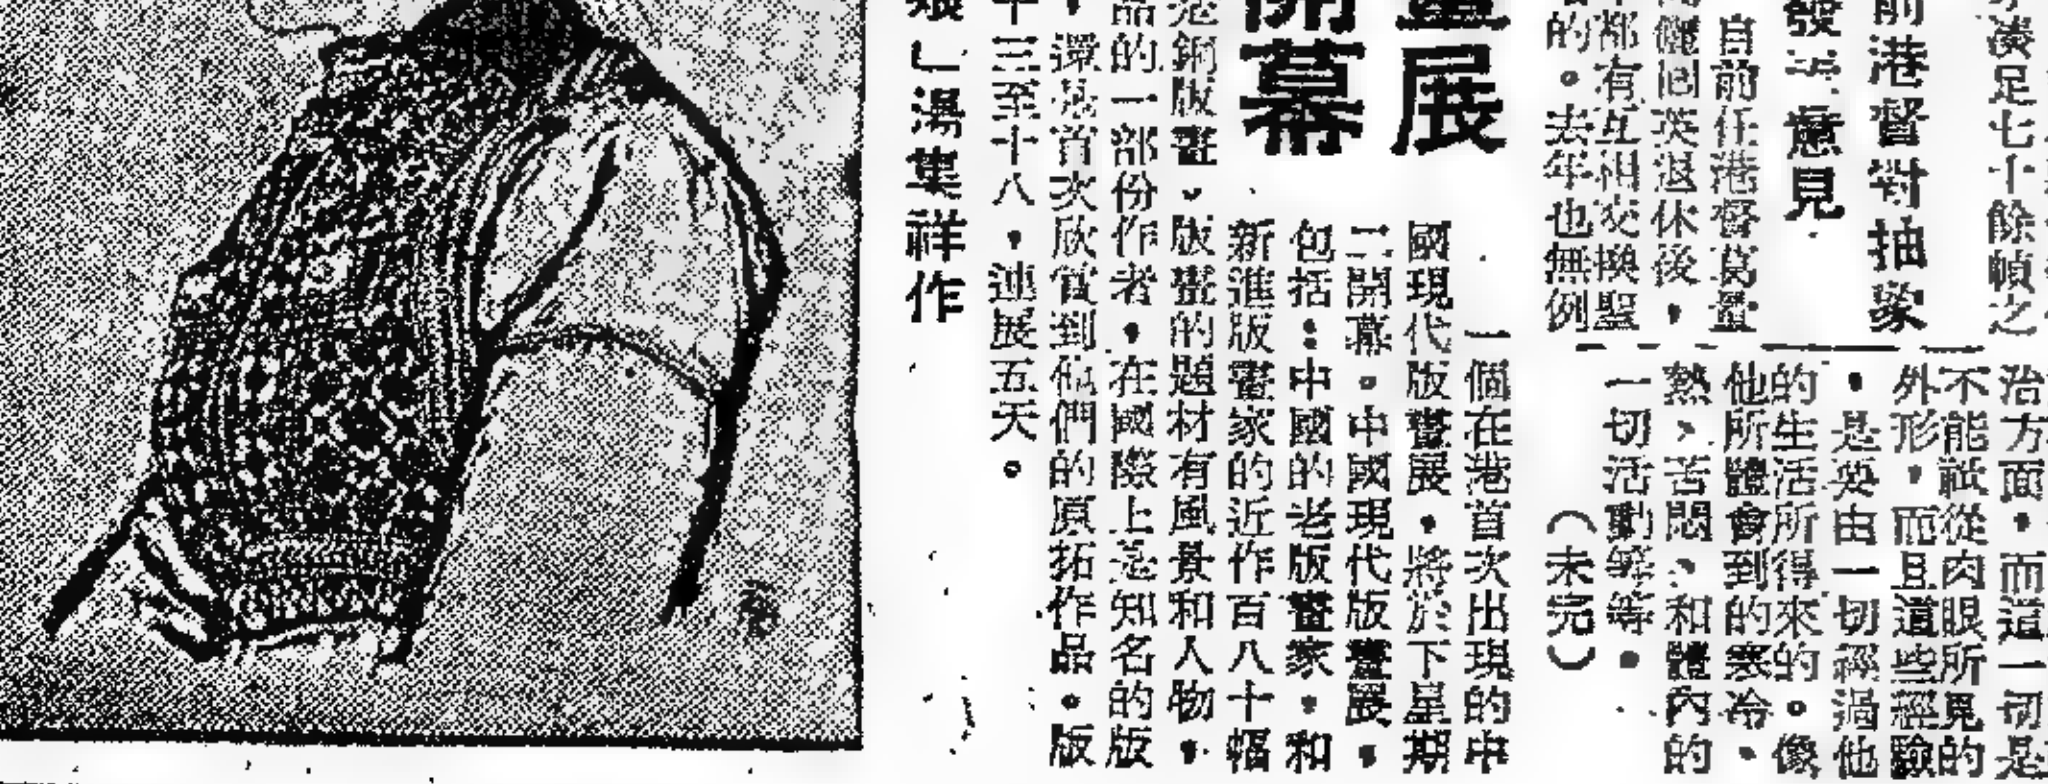 湊足七十餘幀之
前港督對抽象
發表意見
自前任港督葛量
儷回英退休後，
年都有互相交換聖
的。去年也無例
治方面，而這一切是
不能祇從肉眼所見的
外形，而且這些經驗
，是要由一切經過他
的生活所得來的。像
他所體會到的寒冷，
熱、苦悶、和體內的
一切活動等等。
（未完）
畫展
開幕
一個在港首次出現的中
國現代版畫展，將於下星期
二開幕。中國現代版畫展，
包括：中國的老版畫家，和
新進版畫家的近作百八十幅
銅版畫，版畫的題材有風景和人物，
品的一部份作者，在國際上是知名的版
，還是首次欣賞到他們的原拓作品。版
十三至十八，連展五天。
娘」湯集祥作